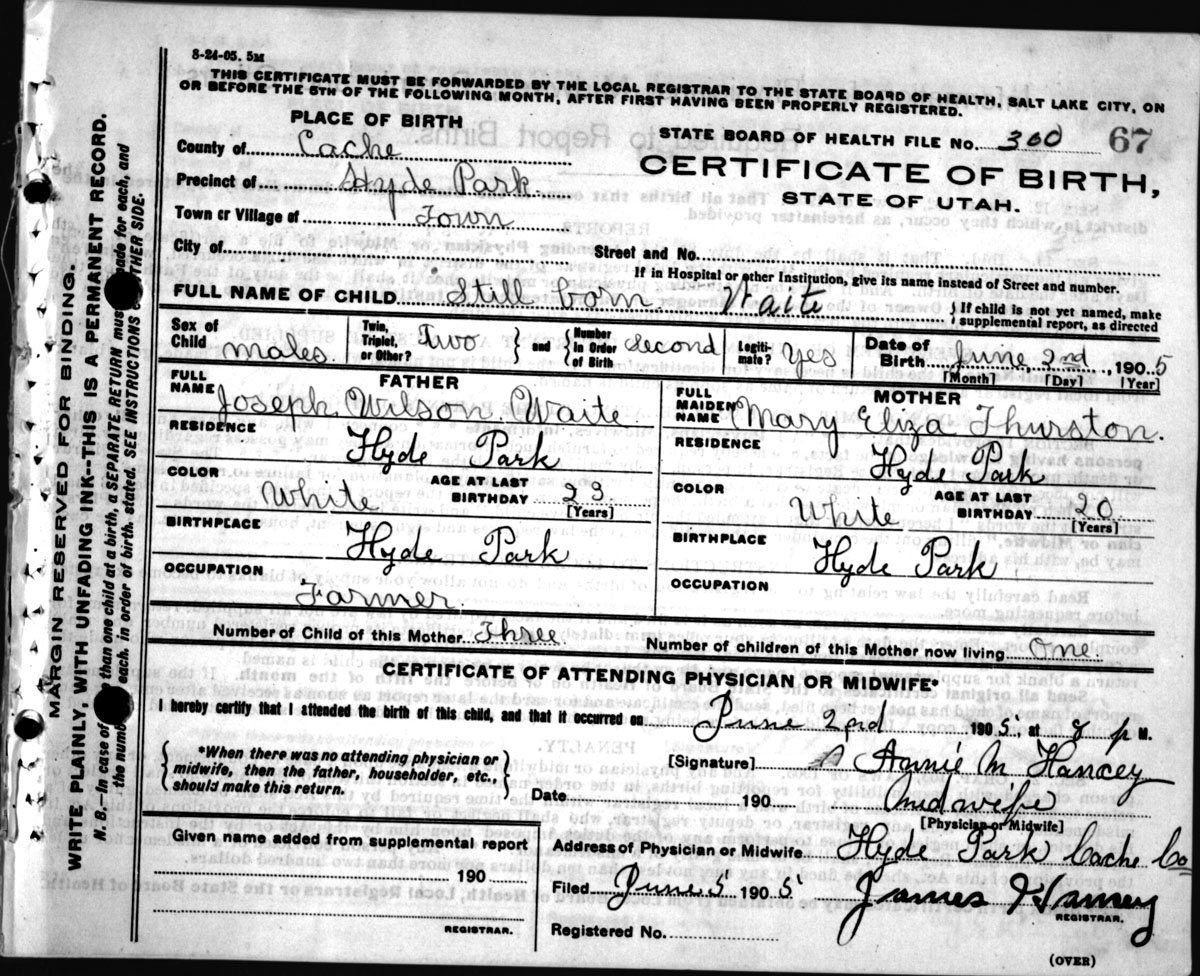 8-24-05. 5M
THIS CERTIFICATE MUST BE FORWARDED BY THE LOCAL REGISTRAR TO THE STATE BOARD OF HEALTH, SALT LAKE CITY, ON
OR BEFORE THE 5TH OF THE FOLLOWING MONTH, AFTER FIRST HAVING BEEN PROPERLY REGISTERED.
PLACE OF BIRTH
STATE BOARD OF HEALTH FILE No. 300 67
County of Cache
CERTIFICATE OF BIRTH,
Precinct of Hyde Park.
STATE OF UTAH.
Town or Village of Town
City of
Street and No.
If in Hospital or other Institution, give its name instead of Street and number.
FULL NAME OF CHILD Still born Waite
If child is not yet named, make
supplemental report, as directed
Sex of Child males. Twin, Triplet, or Other? Two and Number in Order of Birth second Legitimate? Yes Date of Birth June 2nd, 1905
[Month] [Day] [Year]
FATHER
FULL NAME Joseph Wilson Waite
RESIDENCE
Hyde Park
COLOR White AGE AT LAST BIRTHDAY 23 [Years]
BIRTHPLACE
Hyde Park
OCCUPATION
Farmer.
MOTHER
FULL MAIDEN NAME Mary Eliza Thurston.
RESIDENCE
Hyde Park
COLOR White AGE AT LAST BIRTHDAY 20 [Years]
BIRTHPLACE
Hyde Park
OCCUPATION
Number of Child of this Mother Three. Number of children of this Mother now living One.
CERTIFICATE OF ATTENDING PHYSICIAN OR MIDWIFE*
I hereby certify that I attended the birth of this child, and that it occurred on June 2nd 1905, at 8 p M.
*When there was no attending physician or
midwife, then the father, householder, etc.,
should make this return.
[Signature] Annie M Hancey
Date 190 midwife
[Physician or Midwife]
Given name added from supplemental report
190
REGISTRAR.
Address of Physician or Midwife Hyde Park Cache Co
Filed June 5 1905 James Hancey
REGISTRAR.
Registered No.
(OVER)
MARGIN RESERVED FOR BINDING.
WRITE PLAINLY, WITH UNFADING INK--THIS IS A PERMANENT RECORD.
N. B.—In case of than one child at a birth, a SEPARATE RETURN must made for each, and
the number each, in order of birth, stated. SEE INSTRUCTIONS OTHER SIDE.